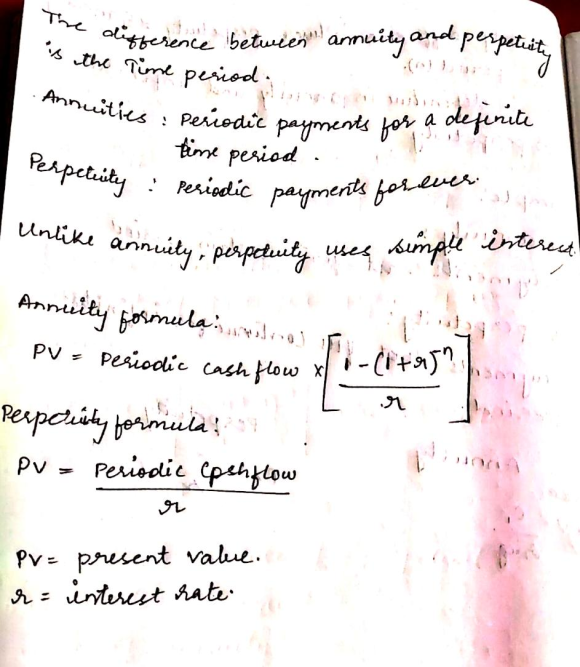 The difference between annuity and perpetuity
is the Time period.
Annuities : Periodic payments for a definite
time period.
Perpetuity : Periodic payments forever.
Unlike annuity, perpetuity uses simple interest.
Annuity formula:
PV = Periodic cash flow x [ 1-(1+r)^n / r ]
Perpetuity formula:
PV = Periodic Cashflow / r
PV = present value.
r = interest rate.